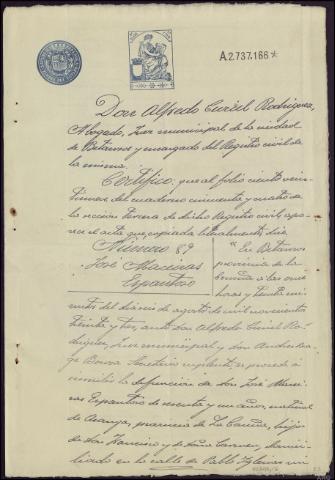 A2.737.166*
Don Alfredo Curiel Rodriguez,
Abogado, Juez municipal de la ciudad
de Betanzos y encargado del Registro civil de
la misma.
Certifico: que al folio ciento vein-
tinueve del cuaderno cincuenta y cuatro de
la seccion tercera de dicho Registro civil, apa-
rece el acta que, copiada literalmente, dice
Número 89
José Maceiras
Espantoso
"En Betanzos
provincia de la
Coruña a las
horas y treinta mi-
nutos del dieciseis de agosto de mil novecientos
treinta y tres, ante Don Alfredo Curiel Ro-
driguez, Juez municipal, y don Andres
Secretario suplente, se procede á
inscribir la defuncion de don José Macei-
ras Espantoso de sesenta y un años, natural
de Aranga, provincia de La Coruña, hijo
de don Francisco y de doña Carmen, domici-
liado en la calle de Pablo Iglesias